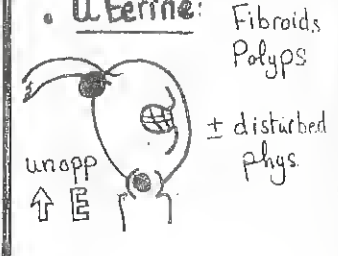 • Uterine:
Fibroids
Polyps
± disturbed
phys.
unopp
⇧ E